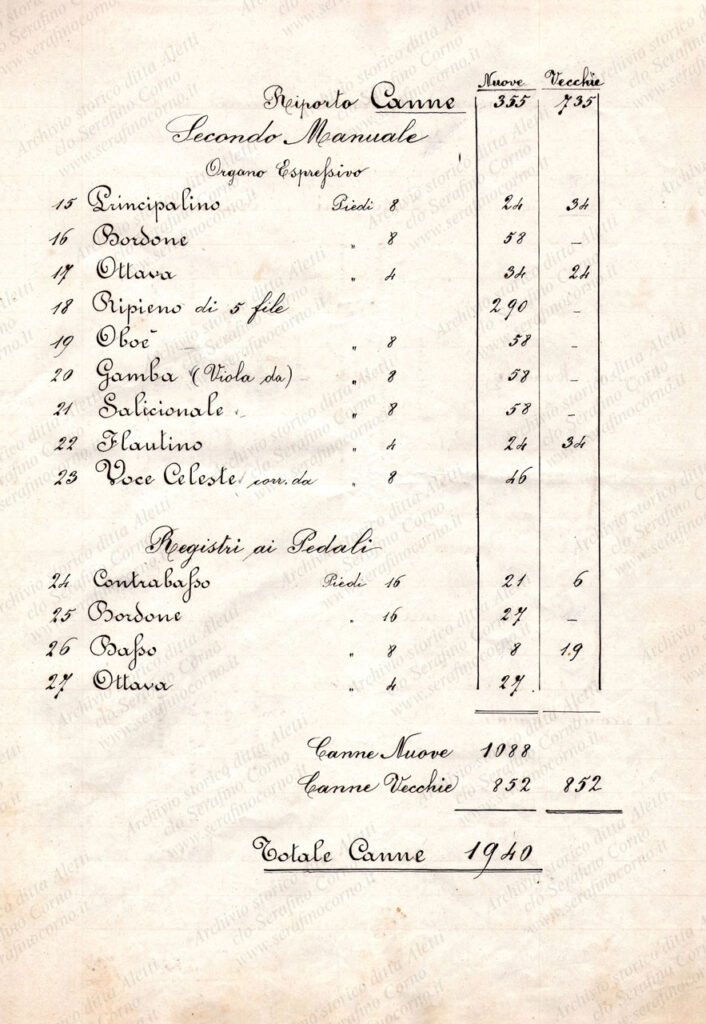 Nuove Vecchie
Riporto Canne 355 735
Secondo Manuale
Organo Espressivo
15 Principalino Piedi 8 24 34
16 Bordone " 8 58 –
17 Ottava " 4 34 24
18 Ripieno di 5 file 290 –
19 Oboe " 8 58 –
20 Gamba (Viola da) " 8 58 –
21 Salicionale " 8 58 –
22 Flautino " 4 24 34
23 Voce Celeste corr. da " 8 46
Registri ai Pedali
24 Contrabasso Piedi 16 21 6
25 Bordone " 16 27 –
26 Basso " 8 8 19
27 Ottava " 4 27
Canne Nuove 1088
Canne Vecchie 852 852
Totale Canne 1940
Archivio storico ditta Aletti
c/o Serafino Corno
www.serafinocorno.it